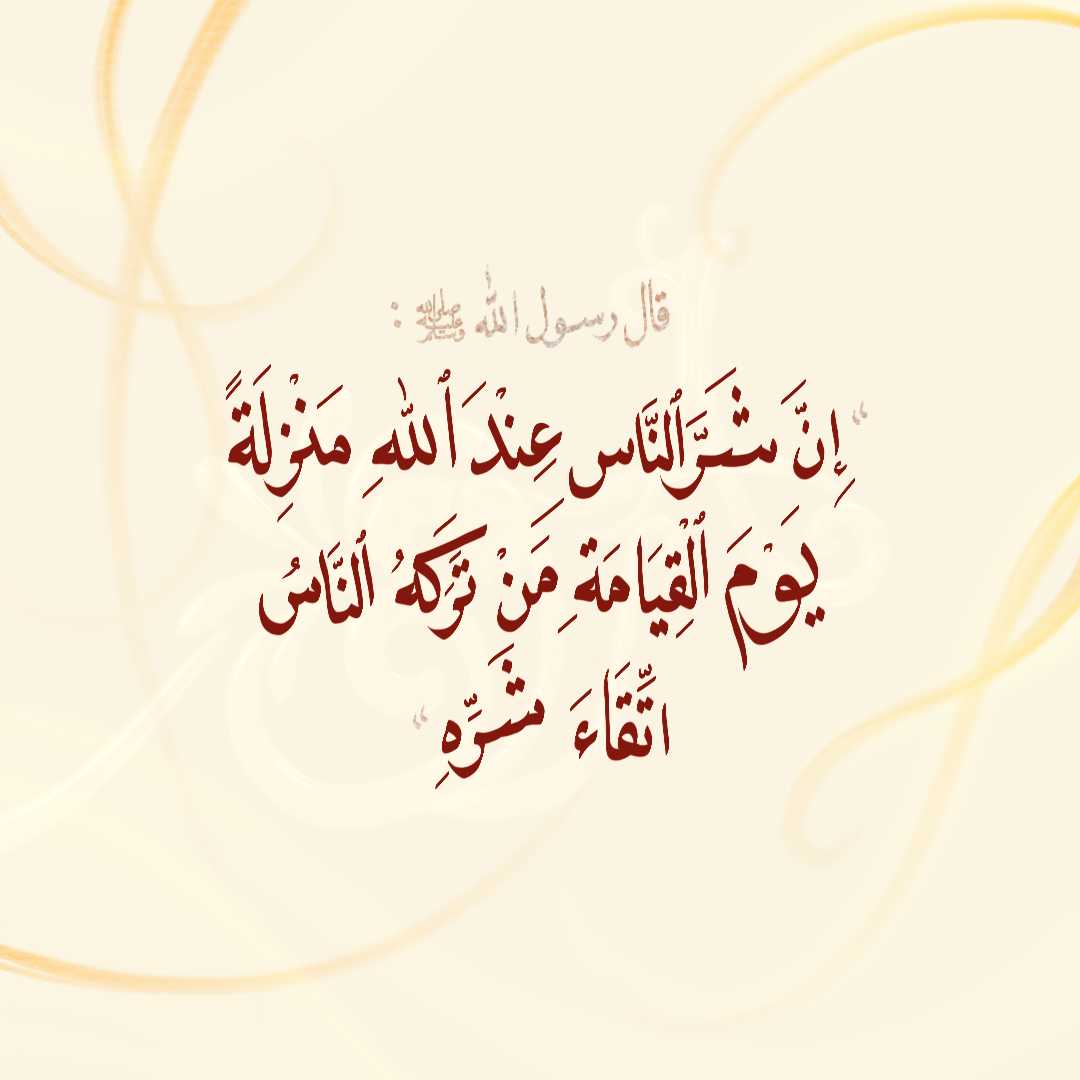 قال رسول الله ﷺ :
“إِنَّ شَرَّ ٱلنَّاسِ عِنْدَ ٱللهِ مَنْزِلَةً
يَوْمَ ٱلْقِيَامَةِ مَنْ تَرَكَهُ ٱلنَّاسُ
اتِّقَاءَ شَرِّهِ“